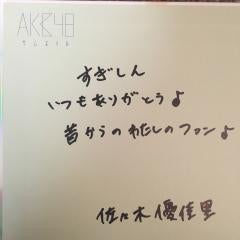 AKB48
サムネイル
すぎしん
いつもありがとう♪
昔からのわたしのファン♪
佐々木優佳里